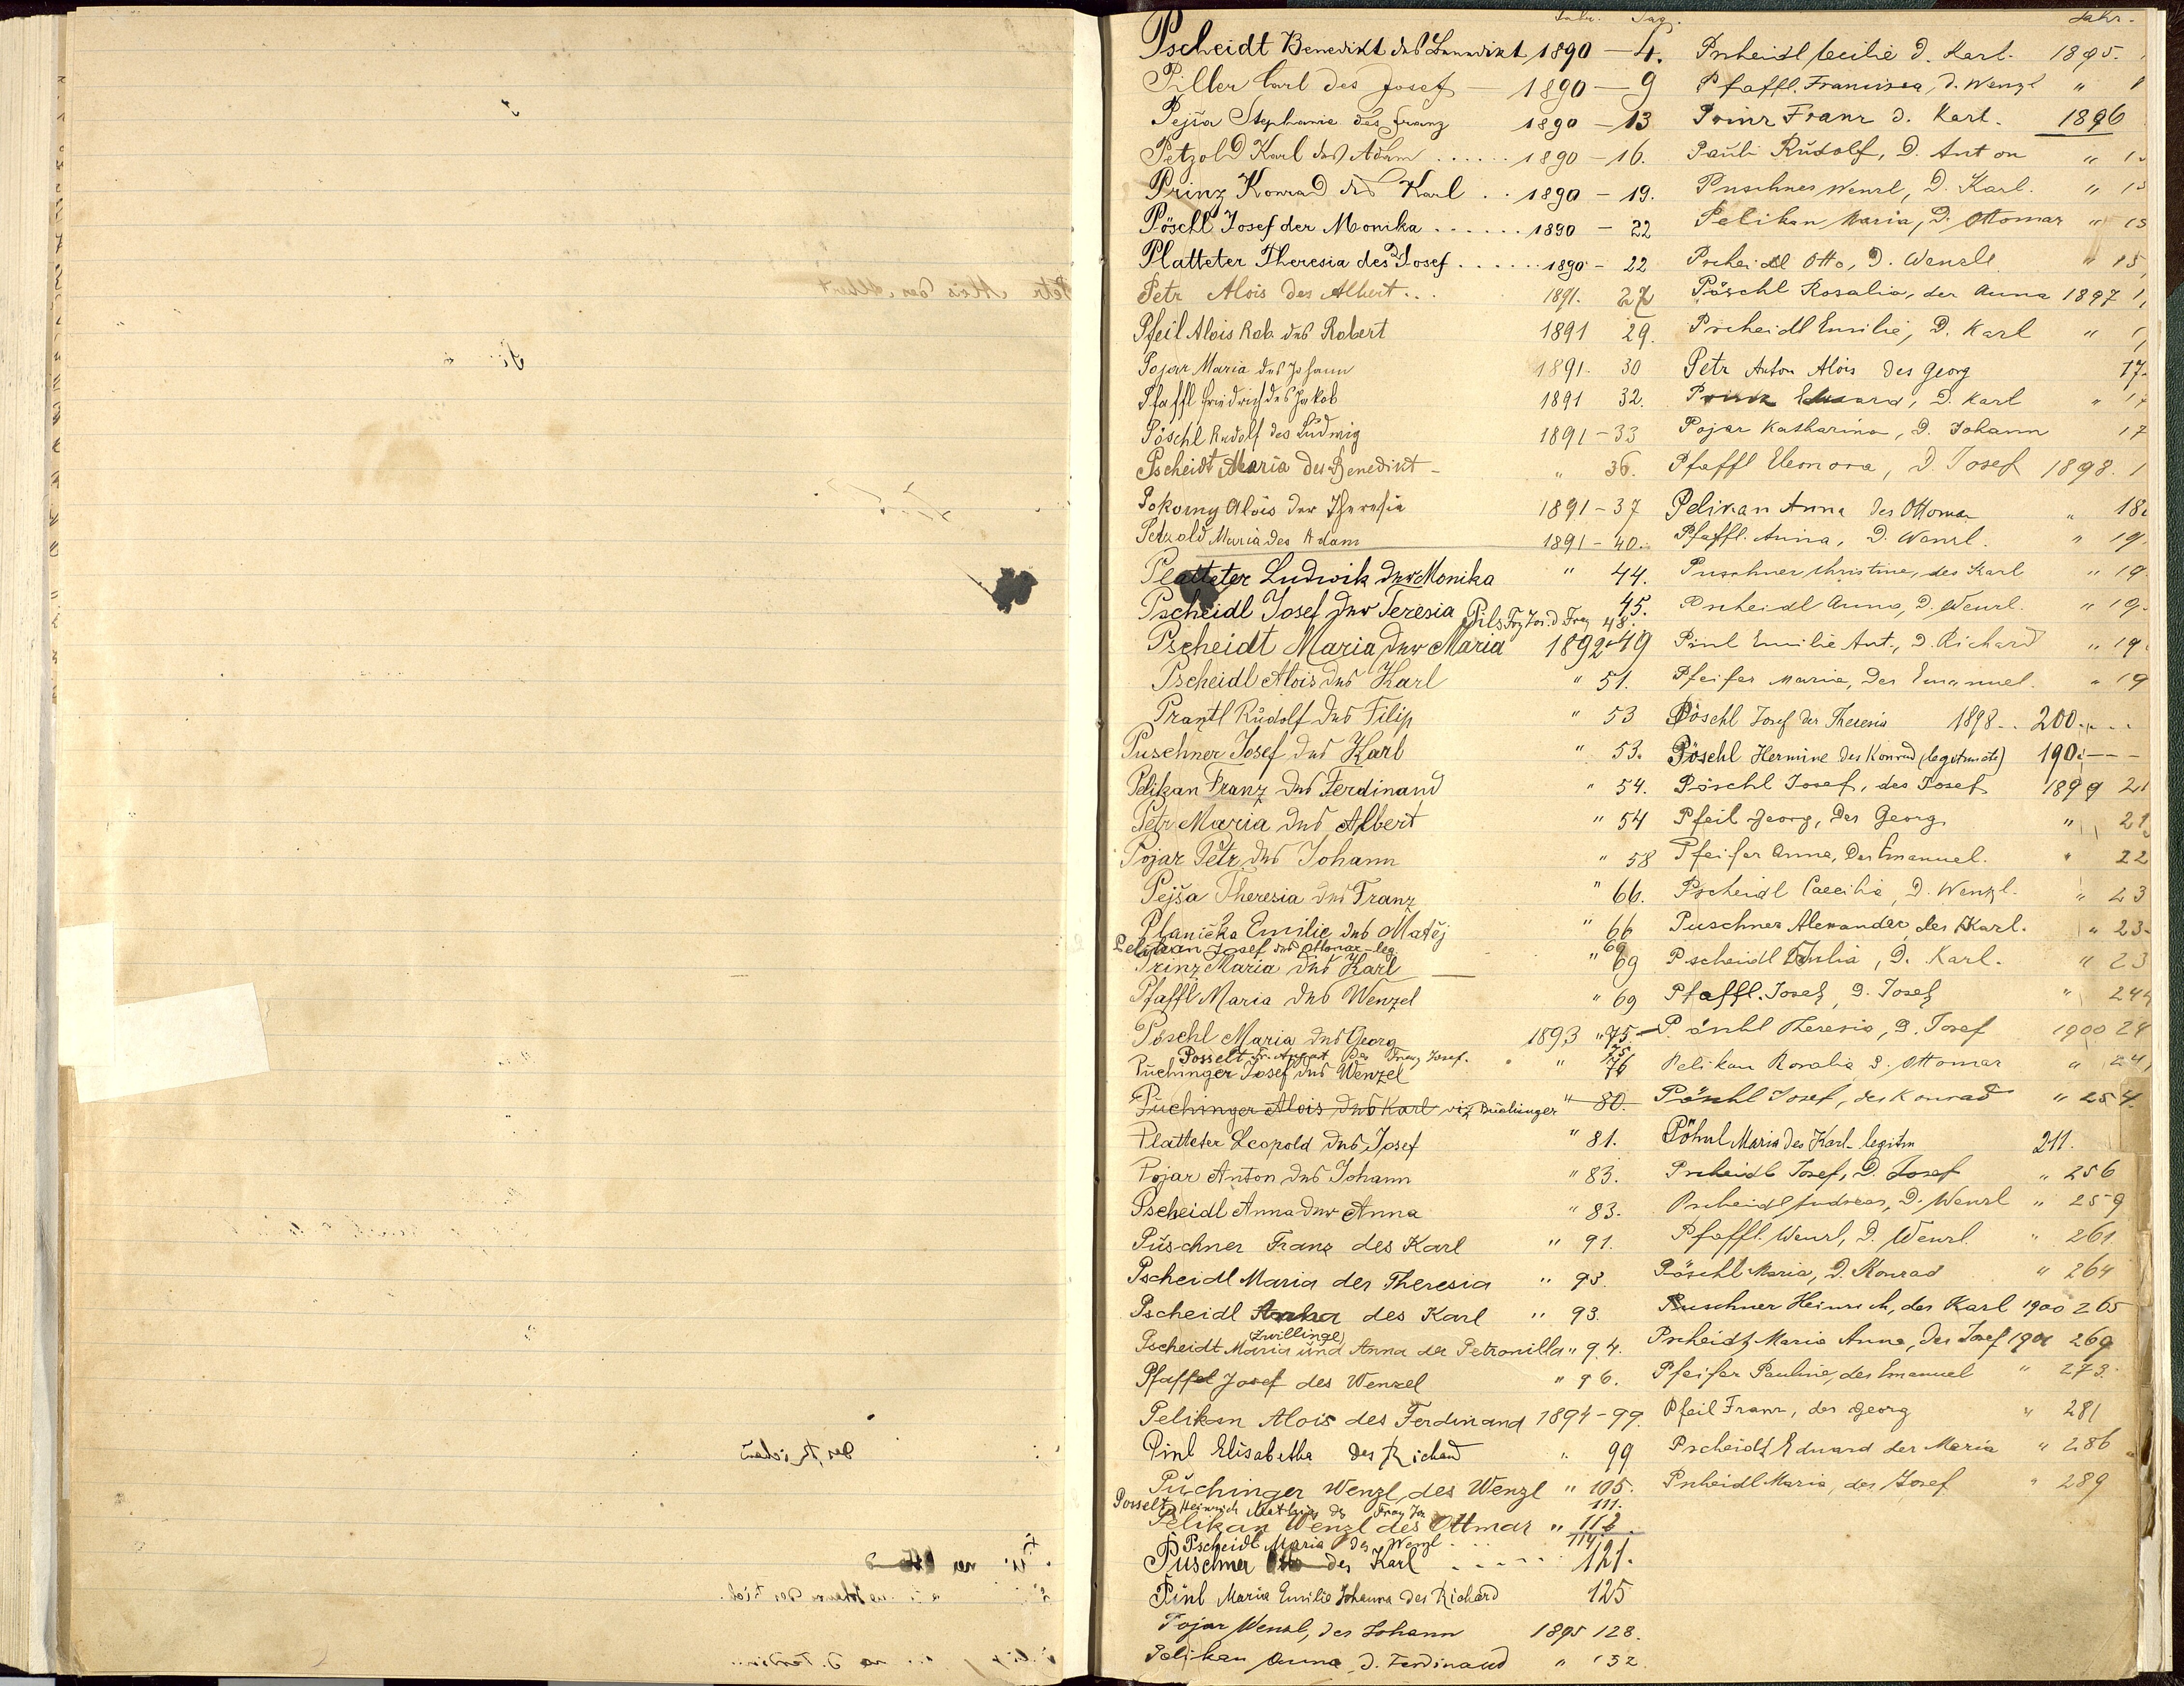 Jahr. Pag.
Pscheidt Benedikt des Benedikt 1890 - 4.
Piller Carl des Josef - 1890 - 9
Pejša Stephanie des Franz 1890 - 13
Petzold Karl des Adam ...... 1890 - 16.
Prinz Konrad des Karl .. 1890 - 19.
Pöschl Josef der Monika ...... 1890 - 22
Platteter Theresia des Josef ...... 1890 - 22
Petr Alois des Albert... 1891. 27
Pfeil Alois Rob. des Robert 1891 29.
Pojar Maria des Johann 1891. 30
Pfaffl Friedrich des Jakob 1891 32.
Pöschl Rudolf des Ludwig 1891 - 33
Pscheidt Maria des Benedikt - " 36.
Pokorny Alois der Theresia 1891 - 37
Petzold Maria des Adam 1891 - 40.
Platteter Ludwik der Monika " 44.
Pscheidl Josef der Teresia 45.
Pils Frz Jos. d Frz 48.
Pscheidt Maria der Maria 1892 49
Pscheidl Alois des Karl " 51.
Prantl Rudolf des Filip " 53
Puschner Josef des Karl " 53.
Pelikan Franz des Ferdinand " 54.
Petr Maria des Albert " 54
Pojar Petr des Johann " 58
Pejša Theresia des Franz " 66.
Planička Emilie des Matěj " 66
Pelikan Josef des Ottomar - leg. 69
Prinz Maria des Karl " 69
Pfaffl Maria des Wenzel " 69
Pöschl Maria des Georg 1893 " 75.
Posselt Fr. August des Franz Josef. " 75
Puchinger Josef des Wenzel " 76
Puchinger Alois des Karl viz Buchinger " 80.
Platteter Leopold des Josef " 81.
Pojar Anton des Johann " 83.
Pscheidl Anna der Anna " 83.
Puschner Franz des Karl " 91.
Pscheidl Maria der Theresia " 93
Pscheidl Anna des Karl " 93.
(Zwillinge)
Pscheidt Maria und Anna der Petronilla " 94.
Pfaffel Josef des Wenzel " 96.
Pelikan Alois des Ferdinand 1894 - 99.
Pinl Elisabetha des Richard " 99
Puchinger Wenzl des Wenzl " 105.
Posselt Heinrich Mathias des Franz Jos 111.
Pelikan Wenzl des Ottmar " 112.
Pscheidl Maria des Wenzl ... 114.
Puschner Otto des Karl ----- 121.
Pinl Maria Emilie Johanna des Richard 125
Pojar Wenzl, des Johann 1895 128.
Pelikan Anna, d. Ferdinand " 132
Jahr.
Pscheidl Cecilie d. Karl. 1895.
Pfaffl. Francisca, d. Wenzl "
Prinz Franz d. Karl. 1896
Pauli Rudolf, d. Anton "
Puschner Wenzl, d. Karl. "
Pelikan Maria, d. Ottomar "
Pscheidl Otto, d. Wenzl " 15
Pöschl Rosalia, der Anna 1897
Pscheidl Emilie, d. Karl "
Petr Anton Alois des Georg 17
Prinz Eduard, d. Karl " 17
Pojar Katharina, d. Johann 17
Pfaffl Eleonora, d. Josef 1898.
Pelikan Anna des Ottomar " 18
Pfaffl. Anna, d. Wenzl. " 19
Puschner Christine, des Karl " 19
Pscheidl Anna, d. Wenzl. " 19
Pinl Emilie Ant., d. Richard " 19
Pfeifer Marie, des Emanuel. " 19
Pöschl Josef der Theresia 1898.. 200....
Pöschl Hermine des Konrad (legitimate) 190. ---
Pöschl Josef, des Josef 1899 21
Pfeil Georg, des Georg " 21
Pfeifer Anna, des Emanuel. " 22
Pscheidl Caecilie, d. Wenzl. " 23
Puschner Alexander, des Karl. " 23
Pscheidl Julia, d. Karl. " 23
Pfaffl. Josef, d. Josef " 244
Pöschl Theresia, d. Josef 1900 24
Pelikan Rosalia d. Ottomar " 24
Pöschl Josef, des Konrad " 254.
Pöhnl Maria des Karl legitm 211.
Pscheidl Josef, d. Josef " 256
Pscheidl Andreas, d. Wenzl " 259
Pfaffl. Wenzl, d. Wenzl. " 261.
Pöschl Maria, d. Konrad " 264
Puschner Heinrich, des Karl 1900 265
Pscheidt Maria Anna, des Josef 1901 269
Pfeifer Pauline, des Emanuel " 273.
Pfeil Franz, des Georg " 281
Pscheidt Eduard der Maria " 286
Pscheidl Maria, des Josef " 289